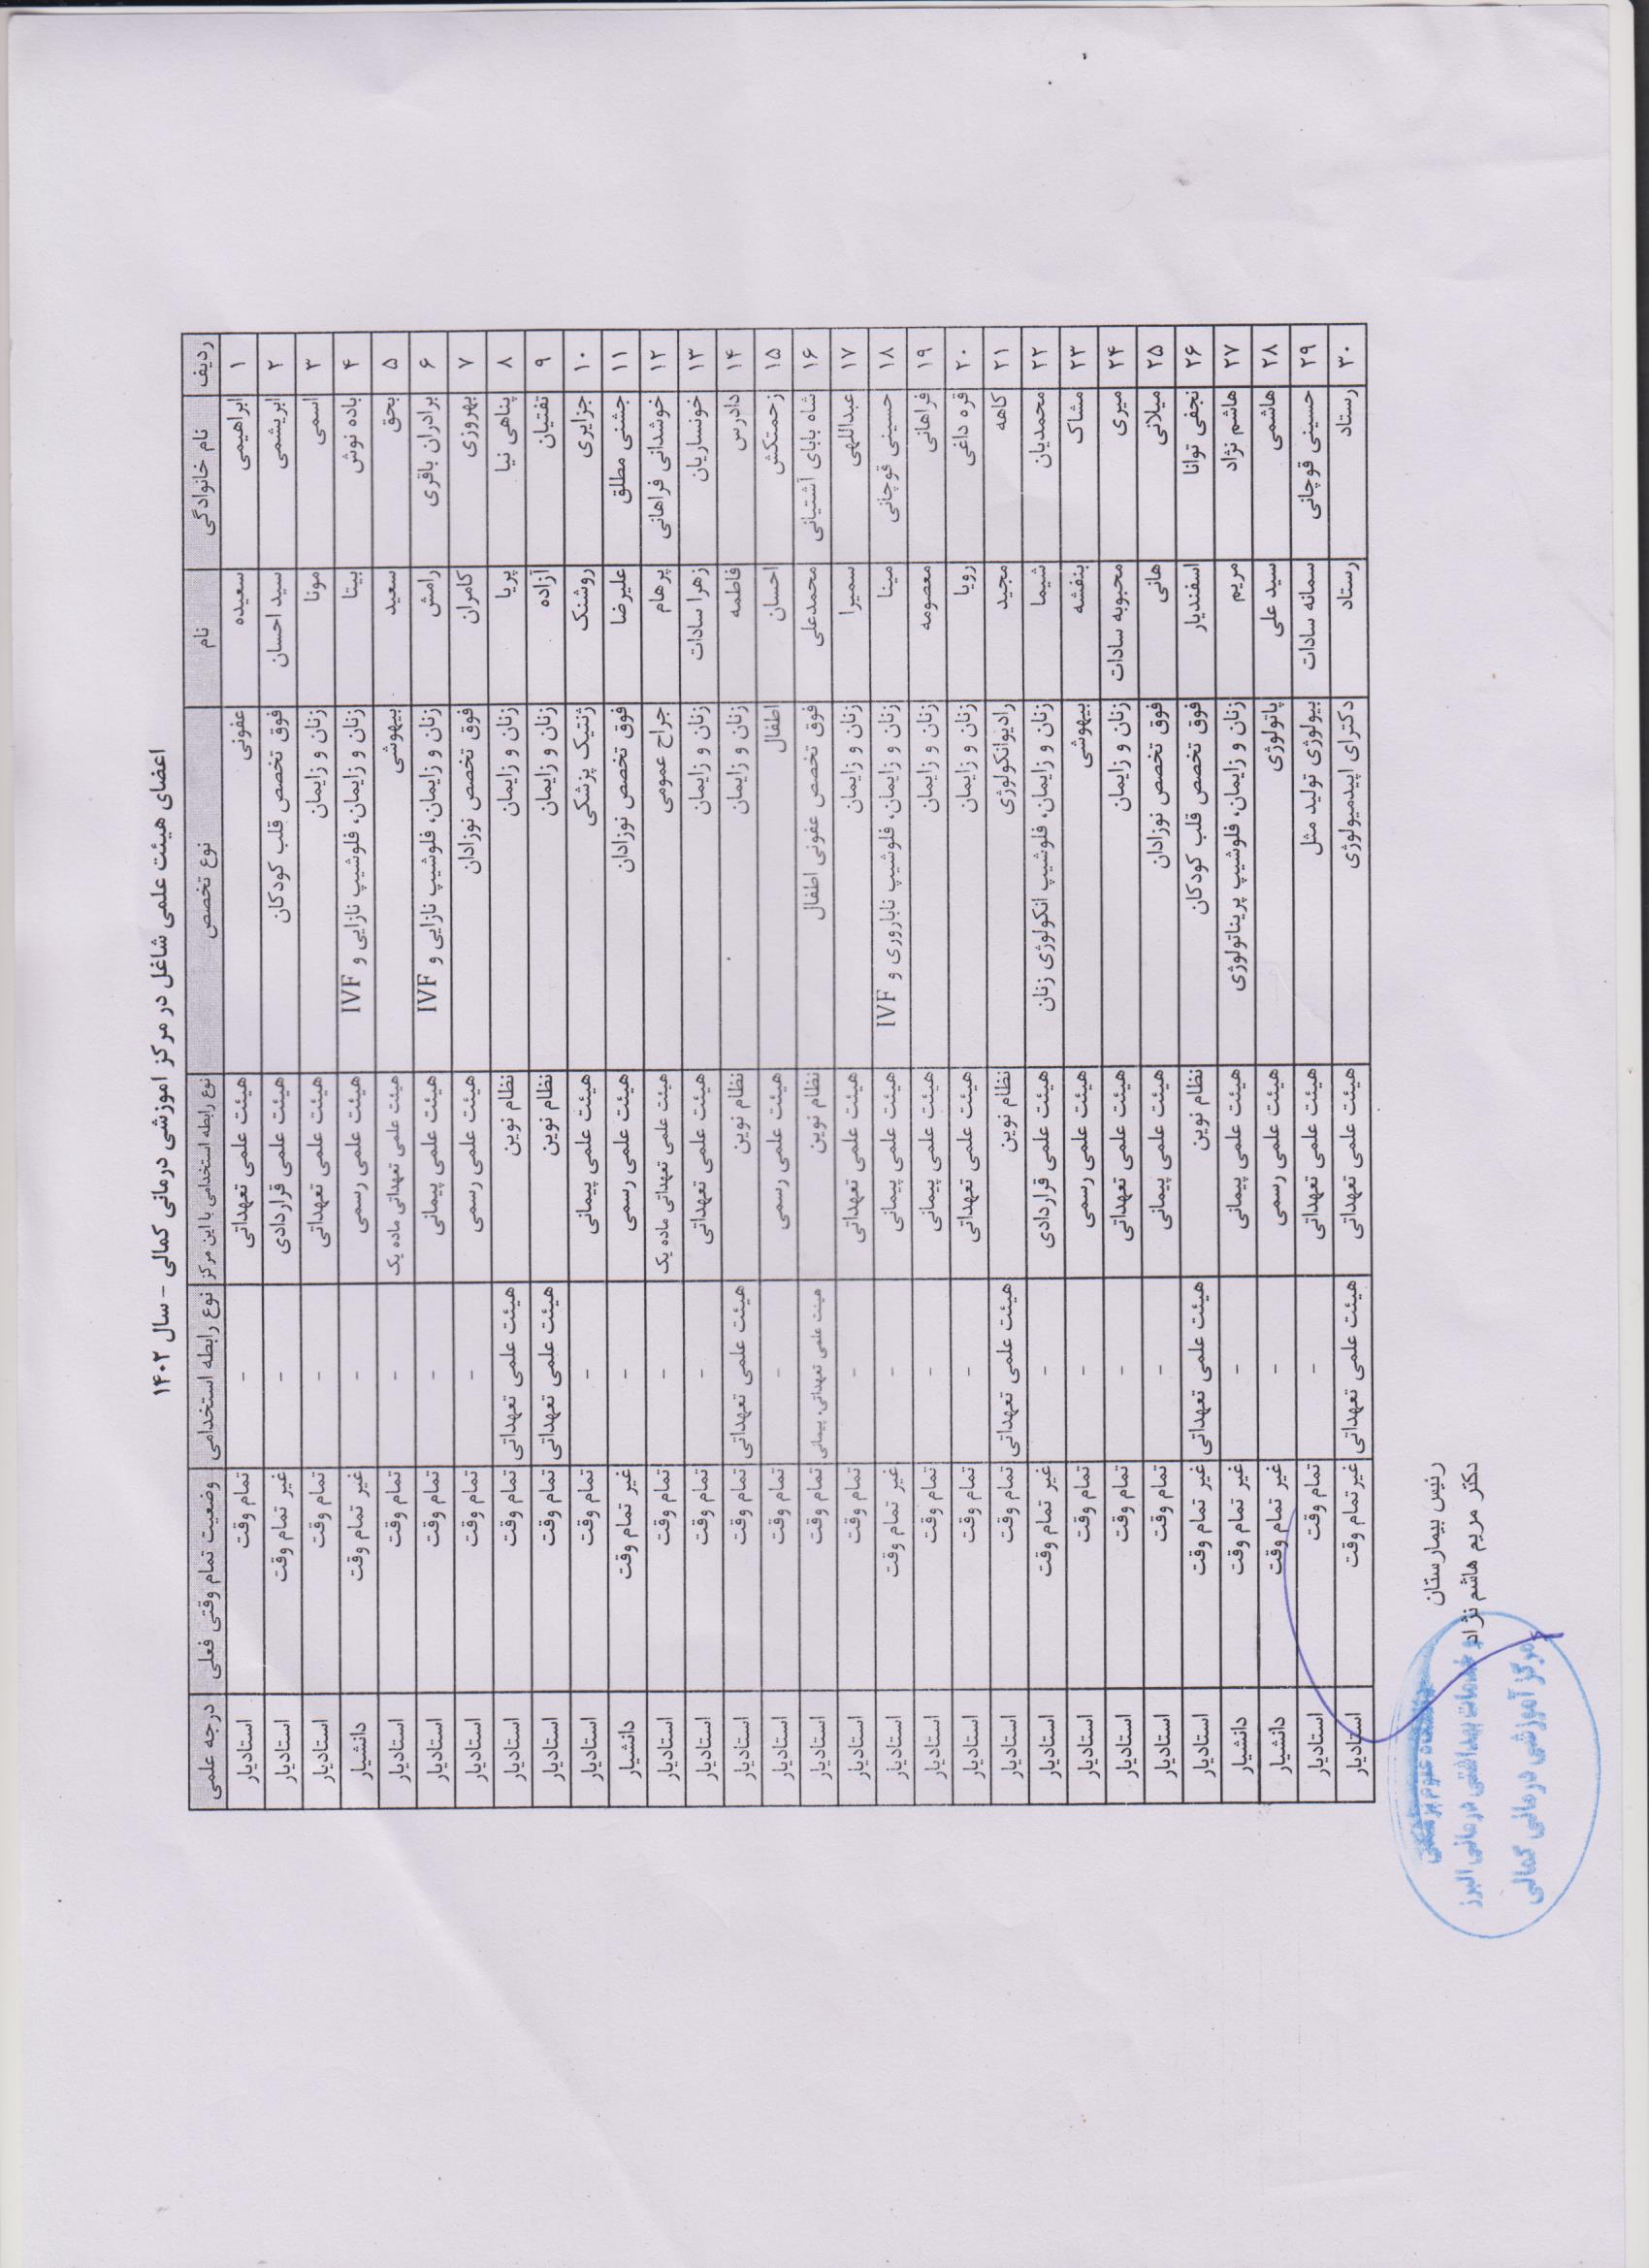 اعضای هیئت علمی شاغل در مرکز اموزشی درمانی کمالی - سال ۱۴۰۲
ردیف نام خانوادگی نام نوع تخصص نوع رابطه استخدامی با این مرکز نوع رابطه استخدامی وضعیت تمام وقتی فعلی درجه علمی
۱ ابراهیمی سعیده عفونی هیئت علمی تعهداتی - تمام وقت استادیار
۲ ابریشمی سید احسان فوق تخصص قلب کودکان هیئت علمی قراردادی - غیر تمام وقت استادیار
۳ اسمی مونا زنان و زایمان هیئت علمی تعهداتی - تمام وقت استادیار
۴ باده نوش بیتا زنان و زایمان، فلوشیپ نازایی و IVF هیئت علمی رسمی - غیر تمام وقت دانشیار
۵ بحق سعید بیهوشی هیئت علمی تعهداتی ماده یک - تمام وقت استادیار
۶ برادران باقری رامش زنان و زایمان، فلوشیپ نازایی و IVF هیئت علمی پیمانی - تمام وقت استادیار
۷ بهروزی کامران فوق تخصص نوزادان هیئت علمی رسمی - تمام وقت استادیار
۸ پناهی نیا پریا زنان و زایمان نظام نوین هیئت علمی تعهداتی تمام وقت استادیار
۹ تفتیان آزاده زنان و زایمان نظام نوین هیئت علمی تعهداتی تمام وقت استادیار
۱۰ جزایری روشنک ژنتیک پزشکی هیئت علمی پیمانی - تمام وقت استادیار
۱۱ جشنی مطلق علیرضا فوق تخصص نوزادان هیئت علمی رسمی - غیر تمام وقت دانشیار
۱۲ خوشدانی فراهانی پرهام جراح عمومی هیئت علمی تعهداتی ماده یک - تمام وقت استادیار
۱۳ خونساریان زهرا سادات زنان و زایمان هیئت علمی تعهداتی - تمام وقت استادیار
۱۴ دادرس فاطمه زنان و زایمان نظام نوین هیئت علمی تعهداتی تمام وقت استادیار
۱۵ زحمتکش احسان اطفال هیئت علمی رسمی - تمام وقت استادیار
۱۶ شاه بابای آشتیانی محمدعلی فوق تخصص عفونی اطفال نظام نوین هیئت علمی تعهداتی، پیمانی تمام وقت استادیار
۱۷ عبداللهی سمیرا زنان و زایمان هیئت علمی تعهداتی - تمام وقت استادیار
۱۸ حسینی قوچانی مینا زنان و زایمان، فلوشیپ ناباروری و IVF هیئت علمی پیمانی - غیر تمام وقت استادیار
۱۹ فراهانی معصومه زنان و زایمان هیئت علمی پیمانی - تمام وقت استادیار
۲۰ قره داغی رویا زنان و زایمان هیئت علمی تعهداتی - تمام وقت استادیار
۲۱ کاهه مجید رادیوانکولوژی نظام نوین هیئت علمی تعهداتی تمام وقت استادیار
۲۲ محمدیان شیما زنان و زایمان، فلوشیپ انکولوژی زنان هیئت علمی قراردادی - غیر تمام وقت استادیار
۲۳ مشاک بنفشه بیهوشی هیئت علمی رسمی - تمام وقت استادیار
۲۴ میری محبوبه سادات زنان و زایمان هیئت علمی تعهداتی - تمام وقت استادیار
۲۵ میلانی هانی فوق تخصص نوزادان هیئت علمی پیمانی - تمام وقت استادیار
۲۶ نجفی توانا اسفندیار فوق تخصص قلب کودکان نظام نوین هیئت علمی تعهداتی غیر تمام وقت استادیار
۲۷ هاشم نژاد مریم زنان و زایمان، فلوشیپ پریناتولوژی هیئت علمی پیمانی - غیر تمام وقت دانشیار
۲۸ هاشمی سید علی پاتولوژی هیئت علمی رسمی - غیر تمام وقت دانشیار
۲۹ حسینی قوچانی سمانه سادات بیولوژی تولید مثل هیئت علمی تعهداتی - تمام وقت استادیار
۳۰ رستاد رستاد دکترای اپیدمیولوژی هیئت علمی تعهداتی هیئت علمی تعهداتی غیر تمام وقت استادیار
رئیس بیمارستان
دکتر مریم هاشم نژاد
دانشگاه علوم پزشکی
و خدمات بهداشتی درمانی البرز
مرکز آموزشی درمانی کمالی